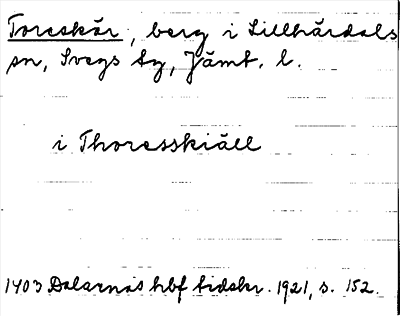 Toreskår, berg i Lillhärdals
sn, Svegs tg, Jämt. l.
i Thoresskiäll
1403 Dalarnas hbf tidskr. 1921, s. 152.